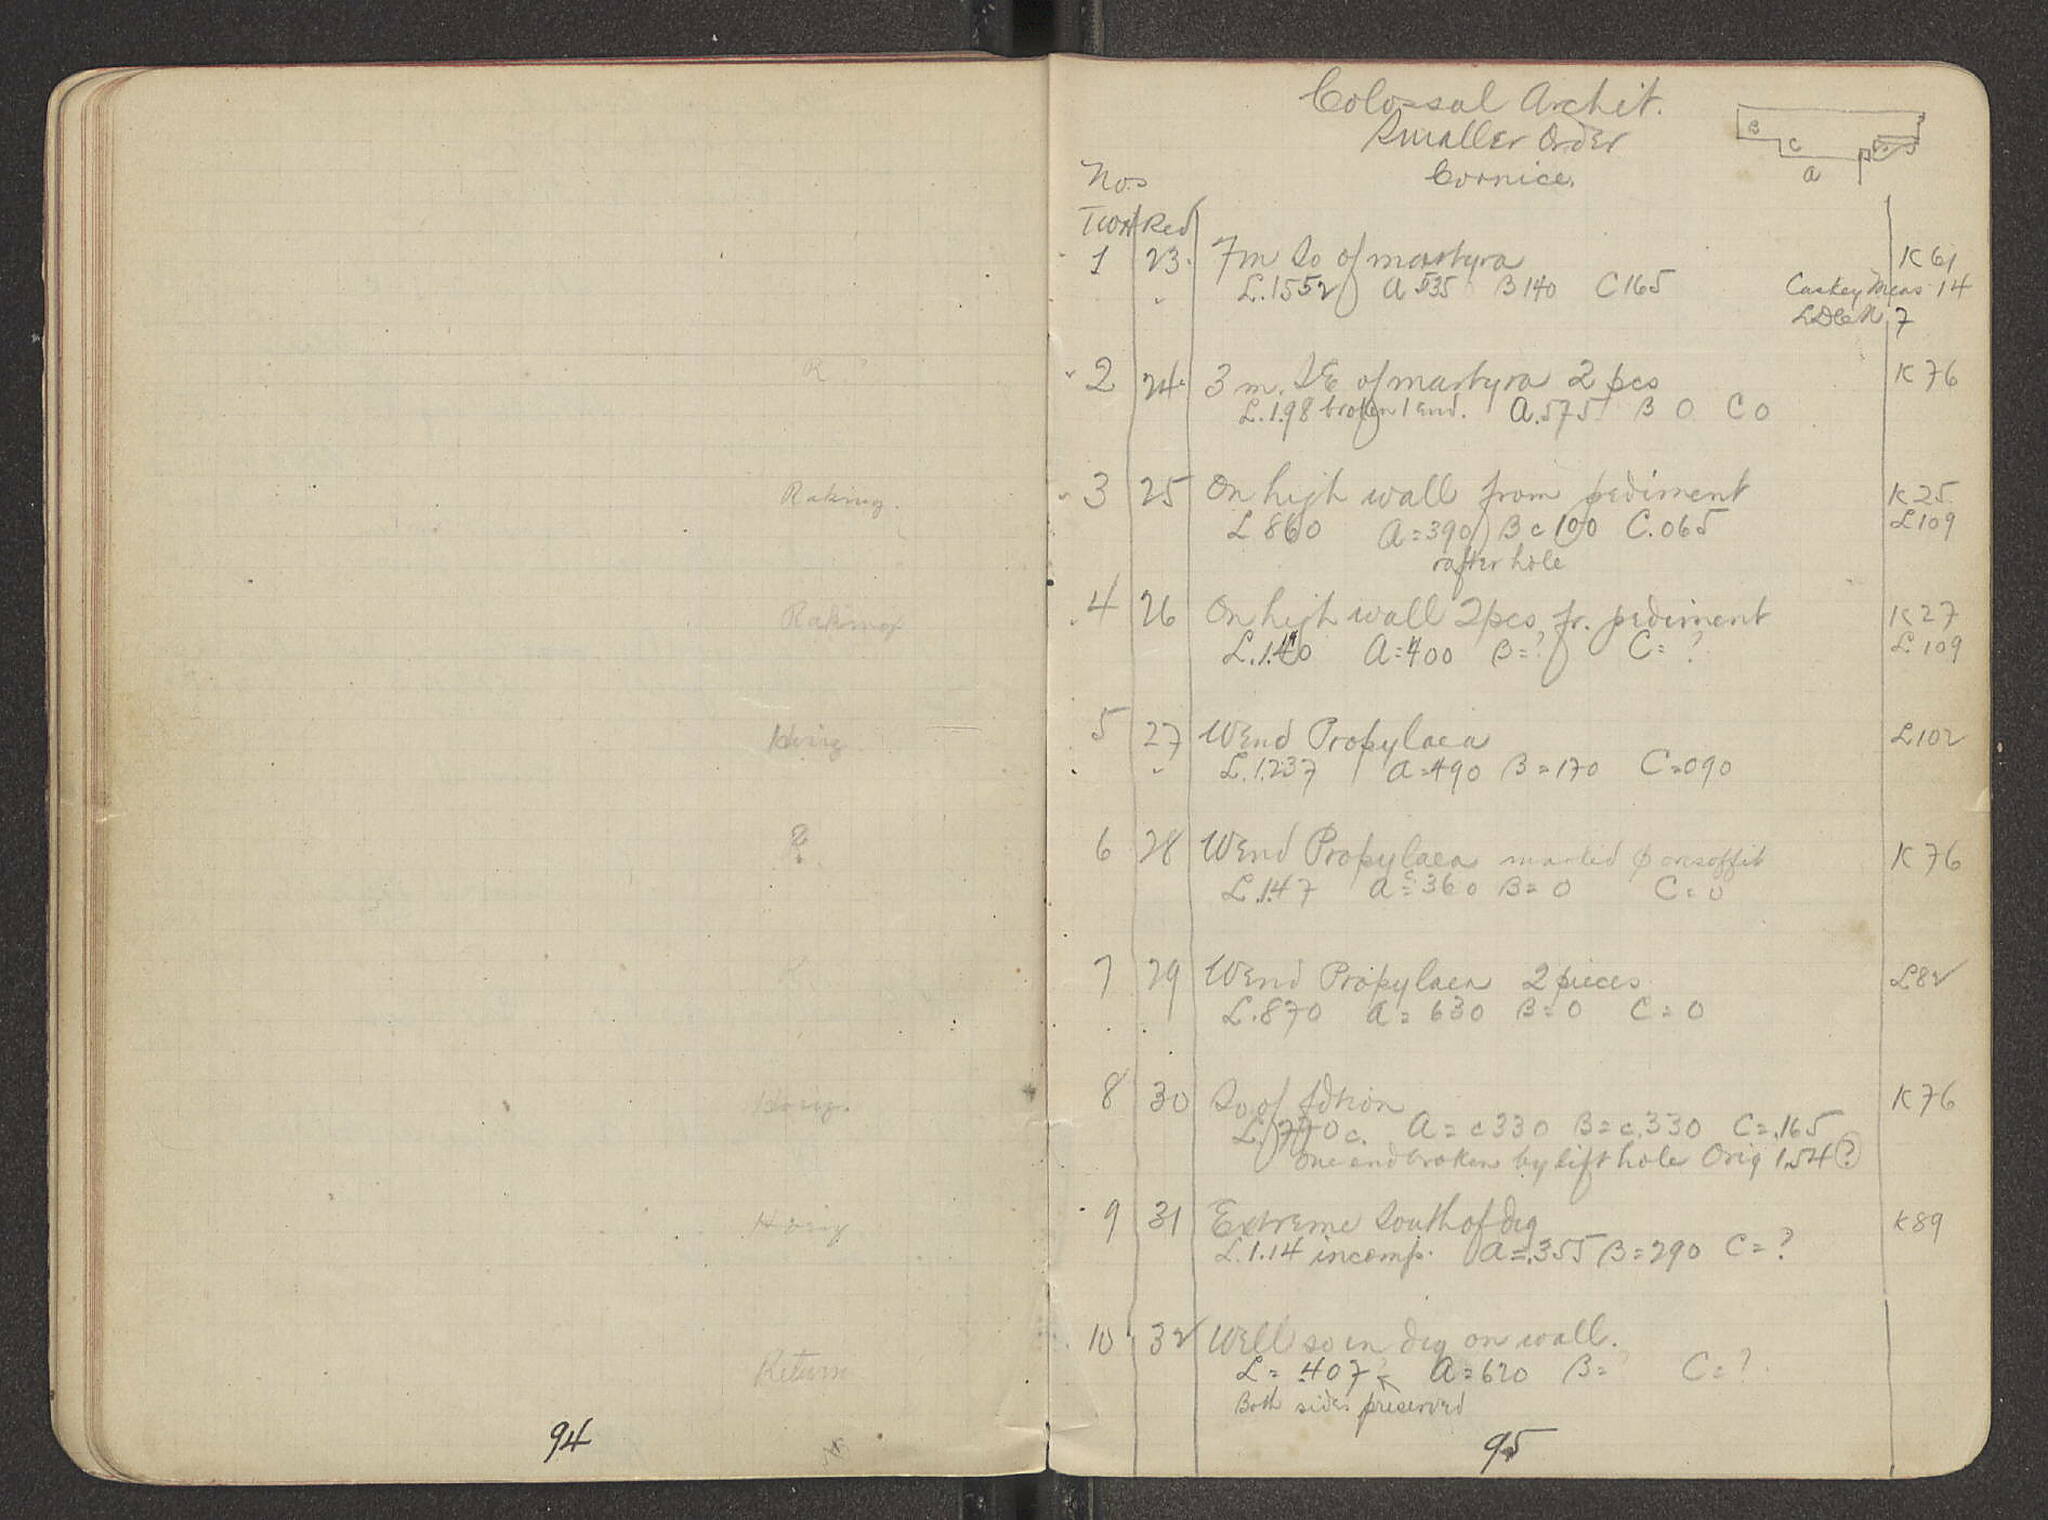 R ?
Raking.
Raking
Horiz.
?
R.
Horiz.
Horiz
Return
94
Colossal Archit.
Smaller Order
Cornice.
B C A
Nos
TWH Red
1 23. 7m So of martyra K 61
L.1552 A 535 B 140 C 165 Caskey Meas 14
7
2 24. 3 m. SE of martyra 2 pcs K 76
L.1.98 broken 1 end. A.575 B 0 C 0
3 25 On high wall from pediment K 25
L 860 A=390 B c 100 C.065 L109
rafter hole
4 26 On high wall 2pcs, fr. pediment K 27
L.1.40 A=400 B=? C= ? L.109
5 27 W End Propylaea L102
L.1.237 A=490 B=170 C=090
6 28 W End Propylaea marked ϕ on soffit K 76
L.1.47 A=c360 B=0 C=0
7 29 W End Propylaea 2 pieces L82
L.870 A=630 B=0 C=0
8 30 So. of fdtion K76
L.770 c. A=c330 B=c.330 C=.165
one end broken by lift hole Orig 1.54 ?
9 31 Extreme South of dig K89
L.1.14 incomp. A=.355 B=290 C=?
10 32 Well so in dig on wall.
L= .407 A=620 B=? C=?
Both sides preserved
95